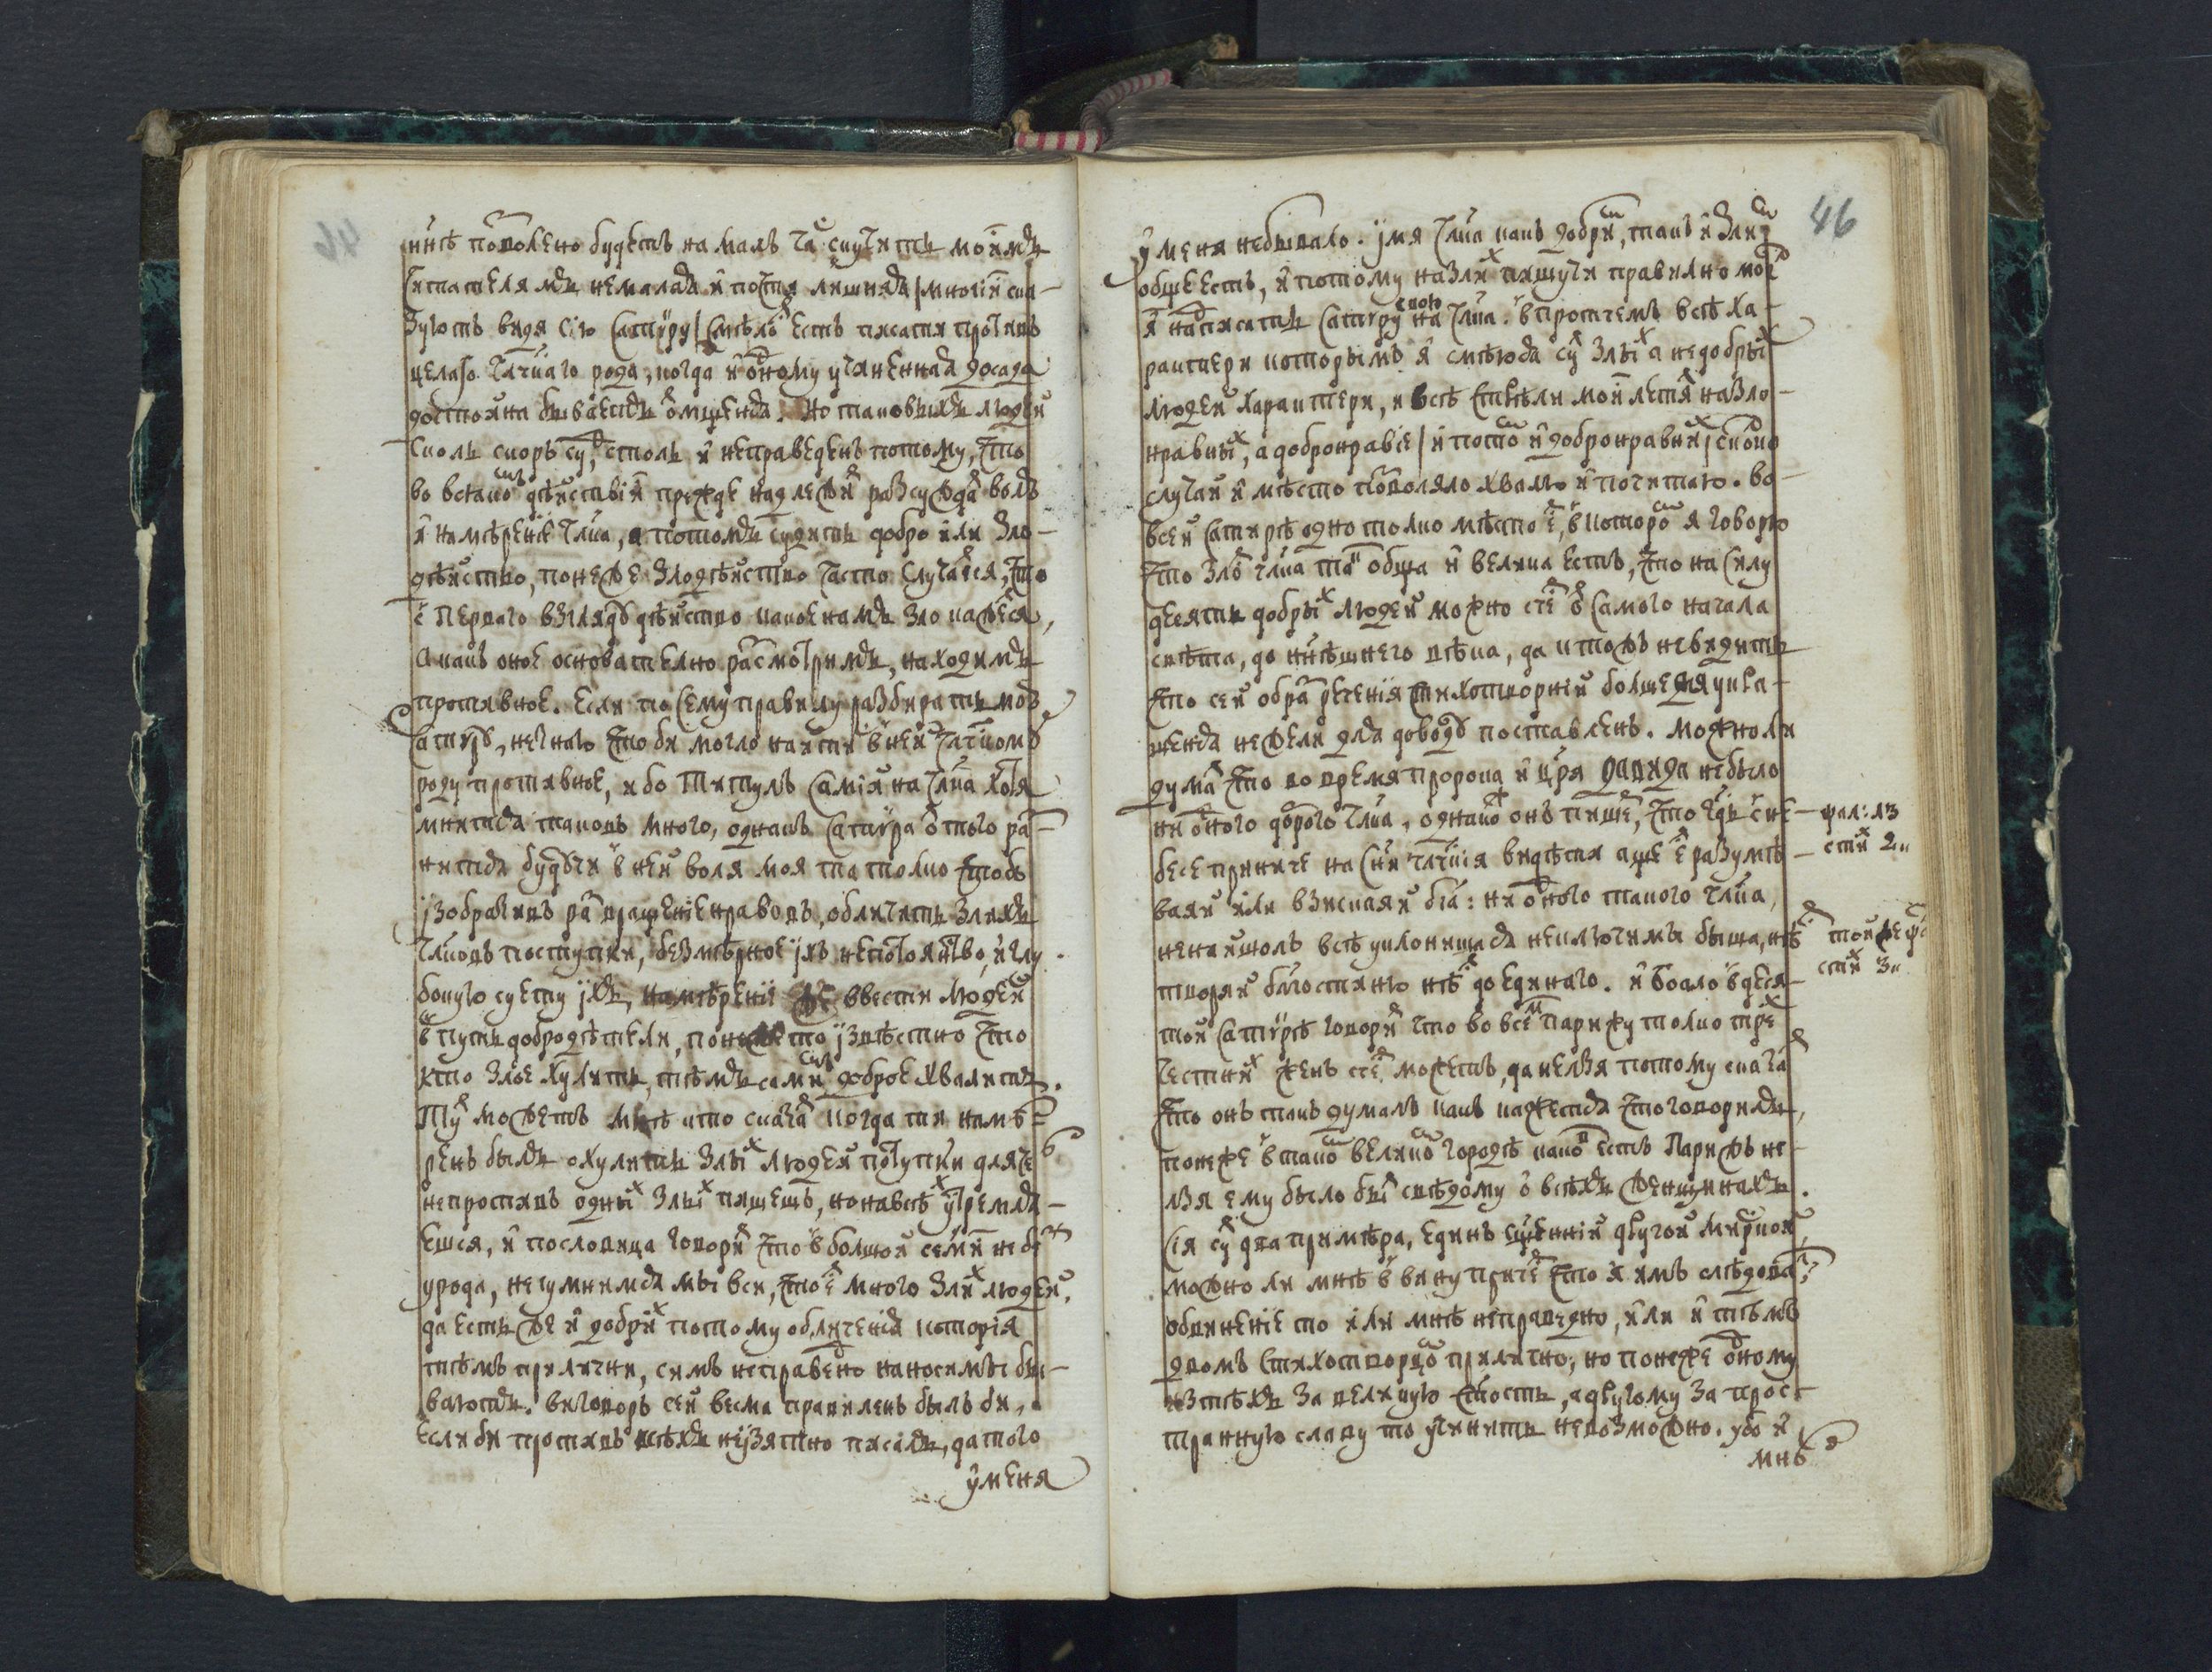 мнѣ поволено будетъ на малъ ча скучить моимъ
читателямъ немалая и почти лишняя / многїи ска-
зуютъ видя сїю сатиру / смѣло есть писати противъ
целаго члчкаго рода, когда и одному учиненная досада
достойна бываетъ омщения. Но таковыхъ людей
сколь споръ су, столь и неправеденъ потому, что
во всякомъ дѣйствїи прежде надлежи разсуждать волю
и намѣренїе члка, а потомъ судить добро или зло-
дѣйство, понеже злодѣйство часто случается, что
с перваго взгляду дѣйство какое намъ зло кажеся,
а какъ оное основателно расмотримъ, находимъ
противное. Если по сему правилу разбирать мою
сатиру, не чаю чтоби могло найти в ней члчкому
роду противное, ибо титулъ самїи на члка хотя
мнится таковъ много, однакъ сатира того
будучи в ней воля моя та толко чтобъ
изобразивъ развращенїе нравовъ, обличить злихъ
члковъ поступки, безмѣрное ихъ непостоянство, и глу-
бокую суету ихъ, намѣренїи же ввести людей
в путь добродѣтели, понеже то извѣстно что
кто злое хулить, тѣмъ самимъ доброе хвалитъ.
Ту можетъ мнѣ кто сказать когда ти намѣ-
ренъ былъ охулить злы людей поступки для че
не противъ одны злы пишешъ, но на всѣ устремля-
ешся, и пословица говори что в болшой семи не бе
урода, не чумнимся мы вси, что е много зли людей,
да есть же и добри потому обличенїя которїя
тѣмъ приличии, симъ неправедно наносимы бы-
ваютъ. виговоръ сей весма правиленъ былъ би,
если би противъ всѣхъ нїзятно писалъ, да того
у меня

46
у меня небывало. имя члка какъ добри, такъ и зли
общее есть, и потому на зли пишучи правилно мог
я написать сатиру свою на члка. впротчемъ всѣ ха-
рактери которымъ я смѣюся су злы а недобры
людей характери, и всѣ стрѣли мои летя на зло-
нравны, а добронравїе / и пото и добронравни / сколко
случай и мѣсто поволяло хвалю и почитаю. во
всей сатирѣ одно толко мѣсто е, в которо я говорю
что зло члка та обща и велика есть, что на силу
десять добры людей можно сче о самого начала
свѣта, до ннѣшнего вѣка, да и тожъ невидить
что сей обра речения стихотворнїи болше для укра-
шения нежели для доводу поставленъ. можно ли
дума что во время пророка и цря Давида небыло
ни одного доброго члка, однако онъ пише, что гдь с не-
бесе приниче на сни члчкїя видѣти аще е разумѣ-
ваяй или взискаяй бга: ни одного такого члка,
ненайшолъ всѣ уклонишася неключимы быша, нѣ
творяй блгостиню нѣ до единаго. и Боало в деся-
той сатирѣ говори что во все парижу толко тре
честни женъ сче можетъ, да нелзя потому сказа
что онъ такъ думалъ какъ кажется что говорилъ,
понеже в тако велико городѣ како есть Парижъ не-
лзя ему было бы свѣдому о всѣхъ женщинахъ.
Сїя су два примѣра, единъ сщеннїй другой мирской
можно ли мнѣ в вину приче что я имъ слѣдова?
обвиненїе то или мнѣ неправедно, или и тѣмъ
двомъ стихотворцо прилично, но понеже одному
изтѣхъ за великую стость, а другому за прос-
транную славу то учинить невозможно. убо и
мнѣ
фал: лз
сти 2
тойже фа
сти 3